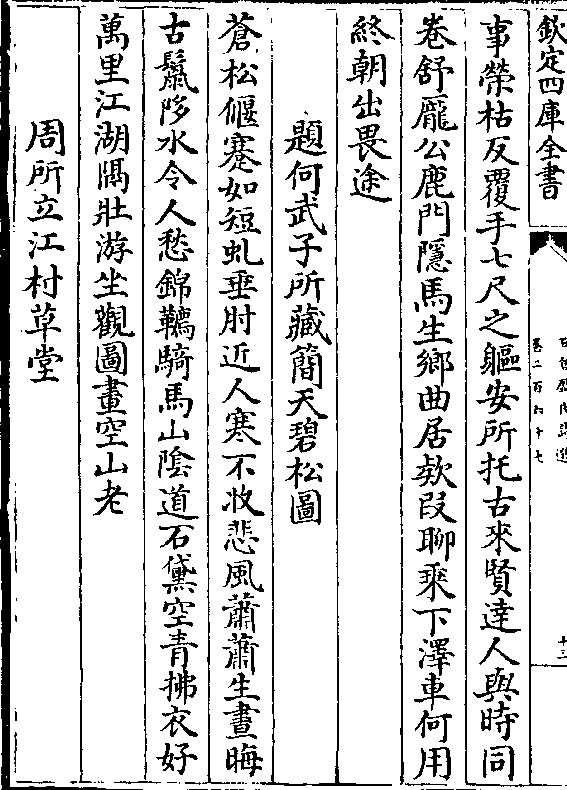 欽定四庫全書
十三
事榮枯反覆手七尺之軀安所托古來賢達人與時同
卷舒龎公鹿門隱馬生鄉曲居欵段聊乘下澤車何用
終朝出畏途
題何武子所藏簡天碧松圖
蒼松偃蹇如短虬垂肘近人寒不收悲風蕭蕭生晝晦
古鬣陊水令人愁錦韉騎馬山陰道石黛空青拂衣好
萬里江湖隔壯游坐觀圖畫空山老
周所立江村草堂